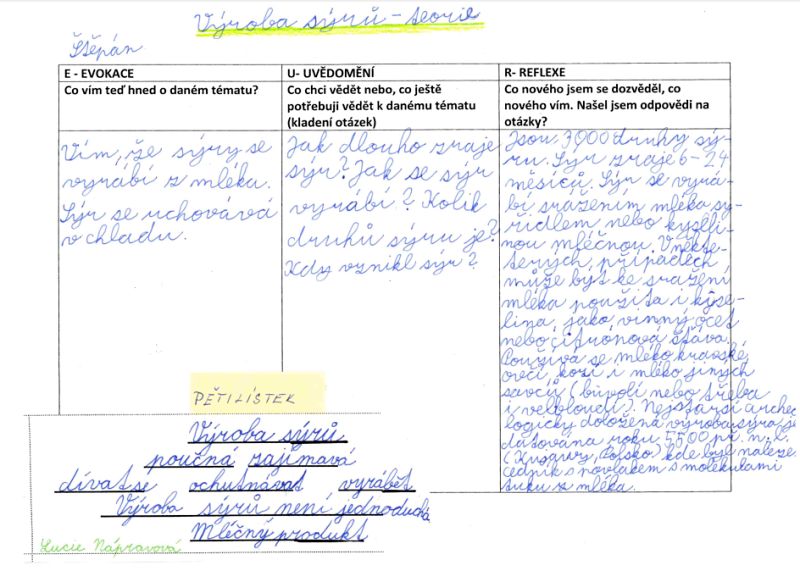 Výroba sýrů - teorie
Štěpán
E - EVOKACE
Co vím teď hned o daném tématu?
Vím, že sýry se
vyrábí z mléka.
Sýr se uchovává
v chladu.
U- UVĚDOMĚNÍ
Co chci vědět nebo, co ještě
potřebuji vědět k danému tématu
(kladení otázek)
Jak dlouho zraje
sýr? Jak se sýr
vyrábí? Kolik
druhů sýru je?
Kdy vznikl sýr?
R- REFLEXE
Co nového jsem se dozvěděl, co
nového vím. Našel jsem odpovědi na
otázky?
Jsou 3000 druhy sý-
ru. Sýr zraje 6-24
měsíců. Sýr se vyrá-
bí srážením mléka sy-
řidlem nebo kyseli-
nou mléčnou. V někte-
terých případech
může být ke sražení
mléka použita i kyse-
lina, jako vinný ocet
nebo citrónová šťáva.
Používá se mléko kravské,
ovčí, kozí i mléko jiných
savců (buvolí nebo třeba
i velbloudí). Nejstarší archeo
logicky doložená výroba sýra je
datována roku 5500 př. n. l.
(Kujawy, Polsko kde byl naleze
cedník s povlakem s molekulami
tuku z mléka.
PĚTILÍSTEK
Výroba sýrů
poučná zajímavá
dívat se ochutnávat vyrábět
Výroba sýrů není jednoduchá
Mléčný produkt
Lucie Nápravová